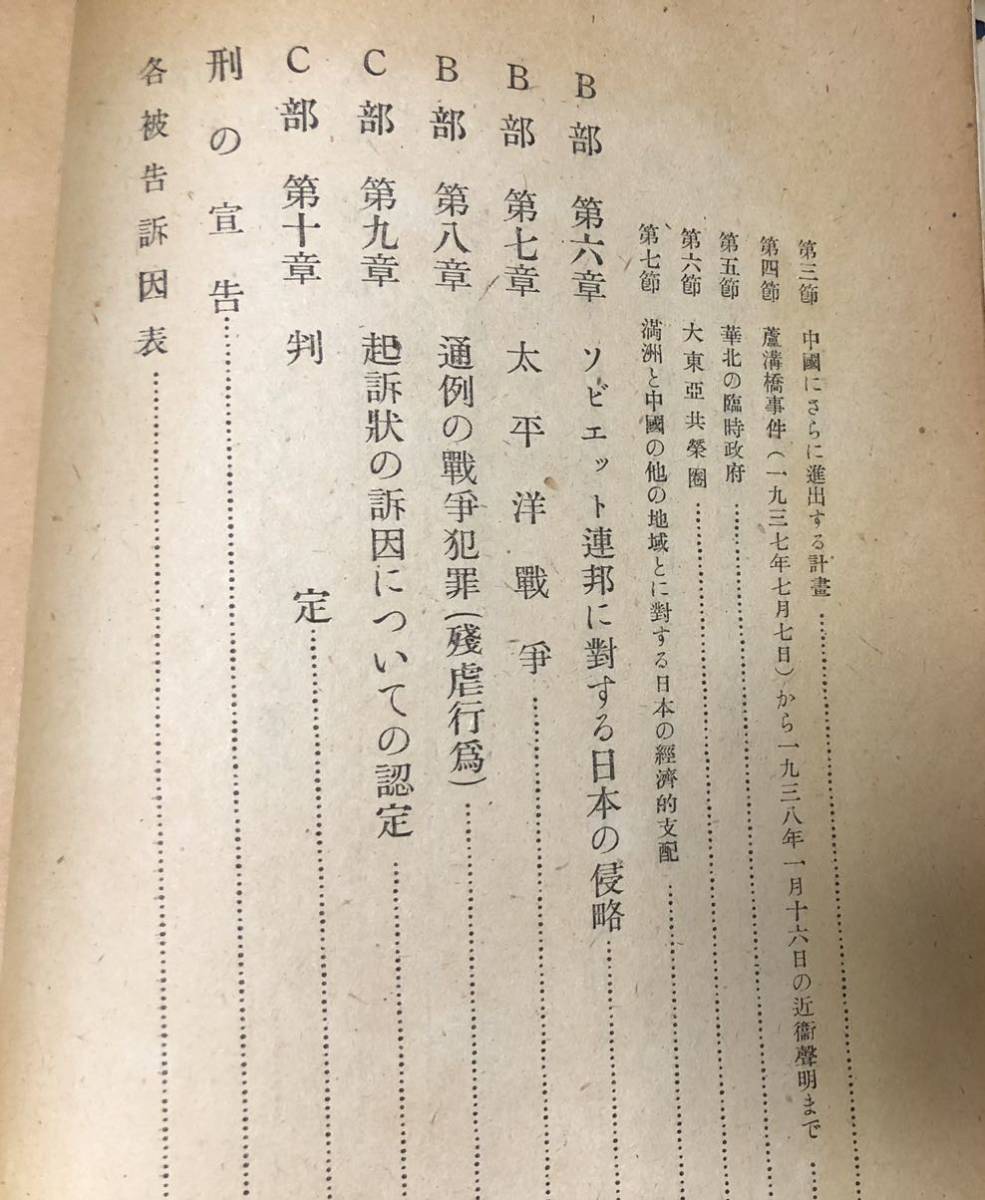 第三節 中國にさらに進出する計畫
第四節 蘆溝橋事件(一九三七年七月七日)から一九三八年一月十六日の近衞聲明まで
第五節 華北の臨時政府
第六節 大東亞共榮圈
第七節 滿洲と中國の他の地域とに對する日本の經濟的支配
B部 第六章 ソビエット連邦に對する日本の侵略
B部 第七章 太平洋戰爭
B部 第八章 通例の戰爭犯罪(殘虐行爲)
C部 第九章 起訴狀の訴因についての認定
C部 第十章 判定
刑の宣告
各被告訴因表